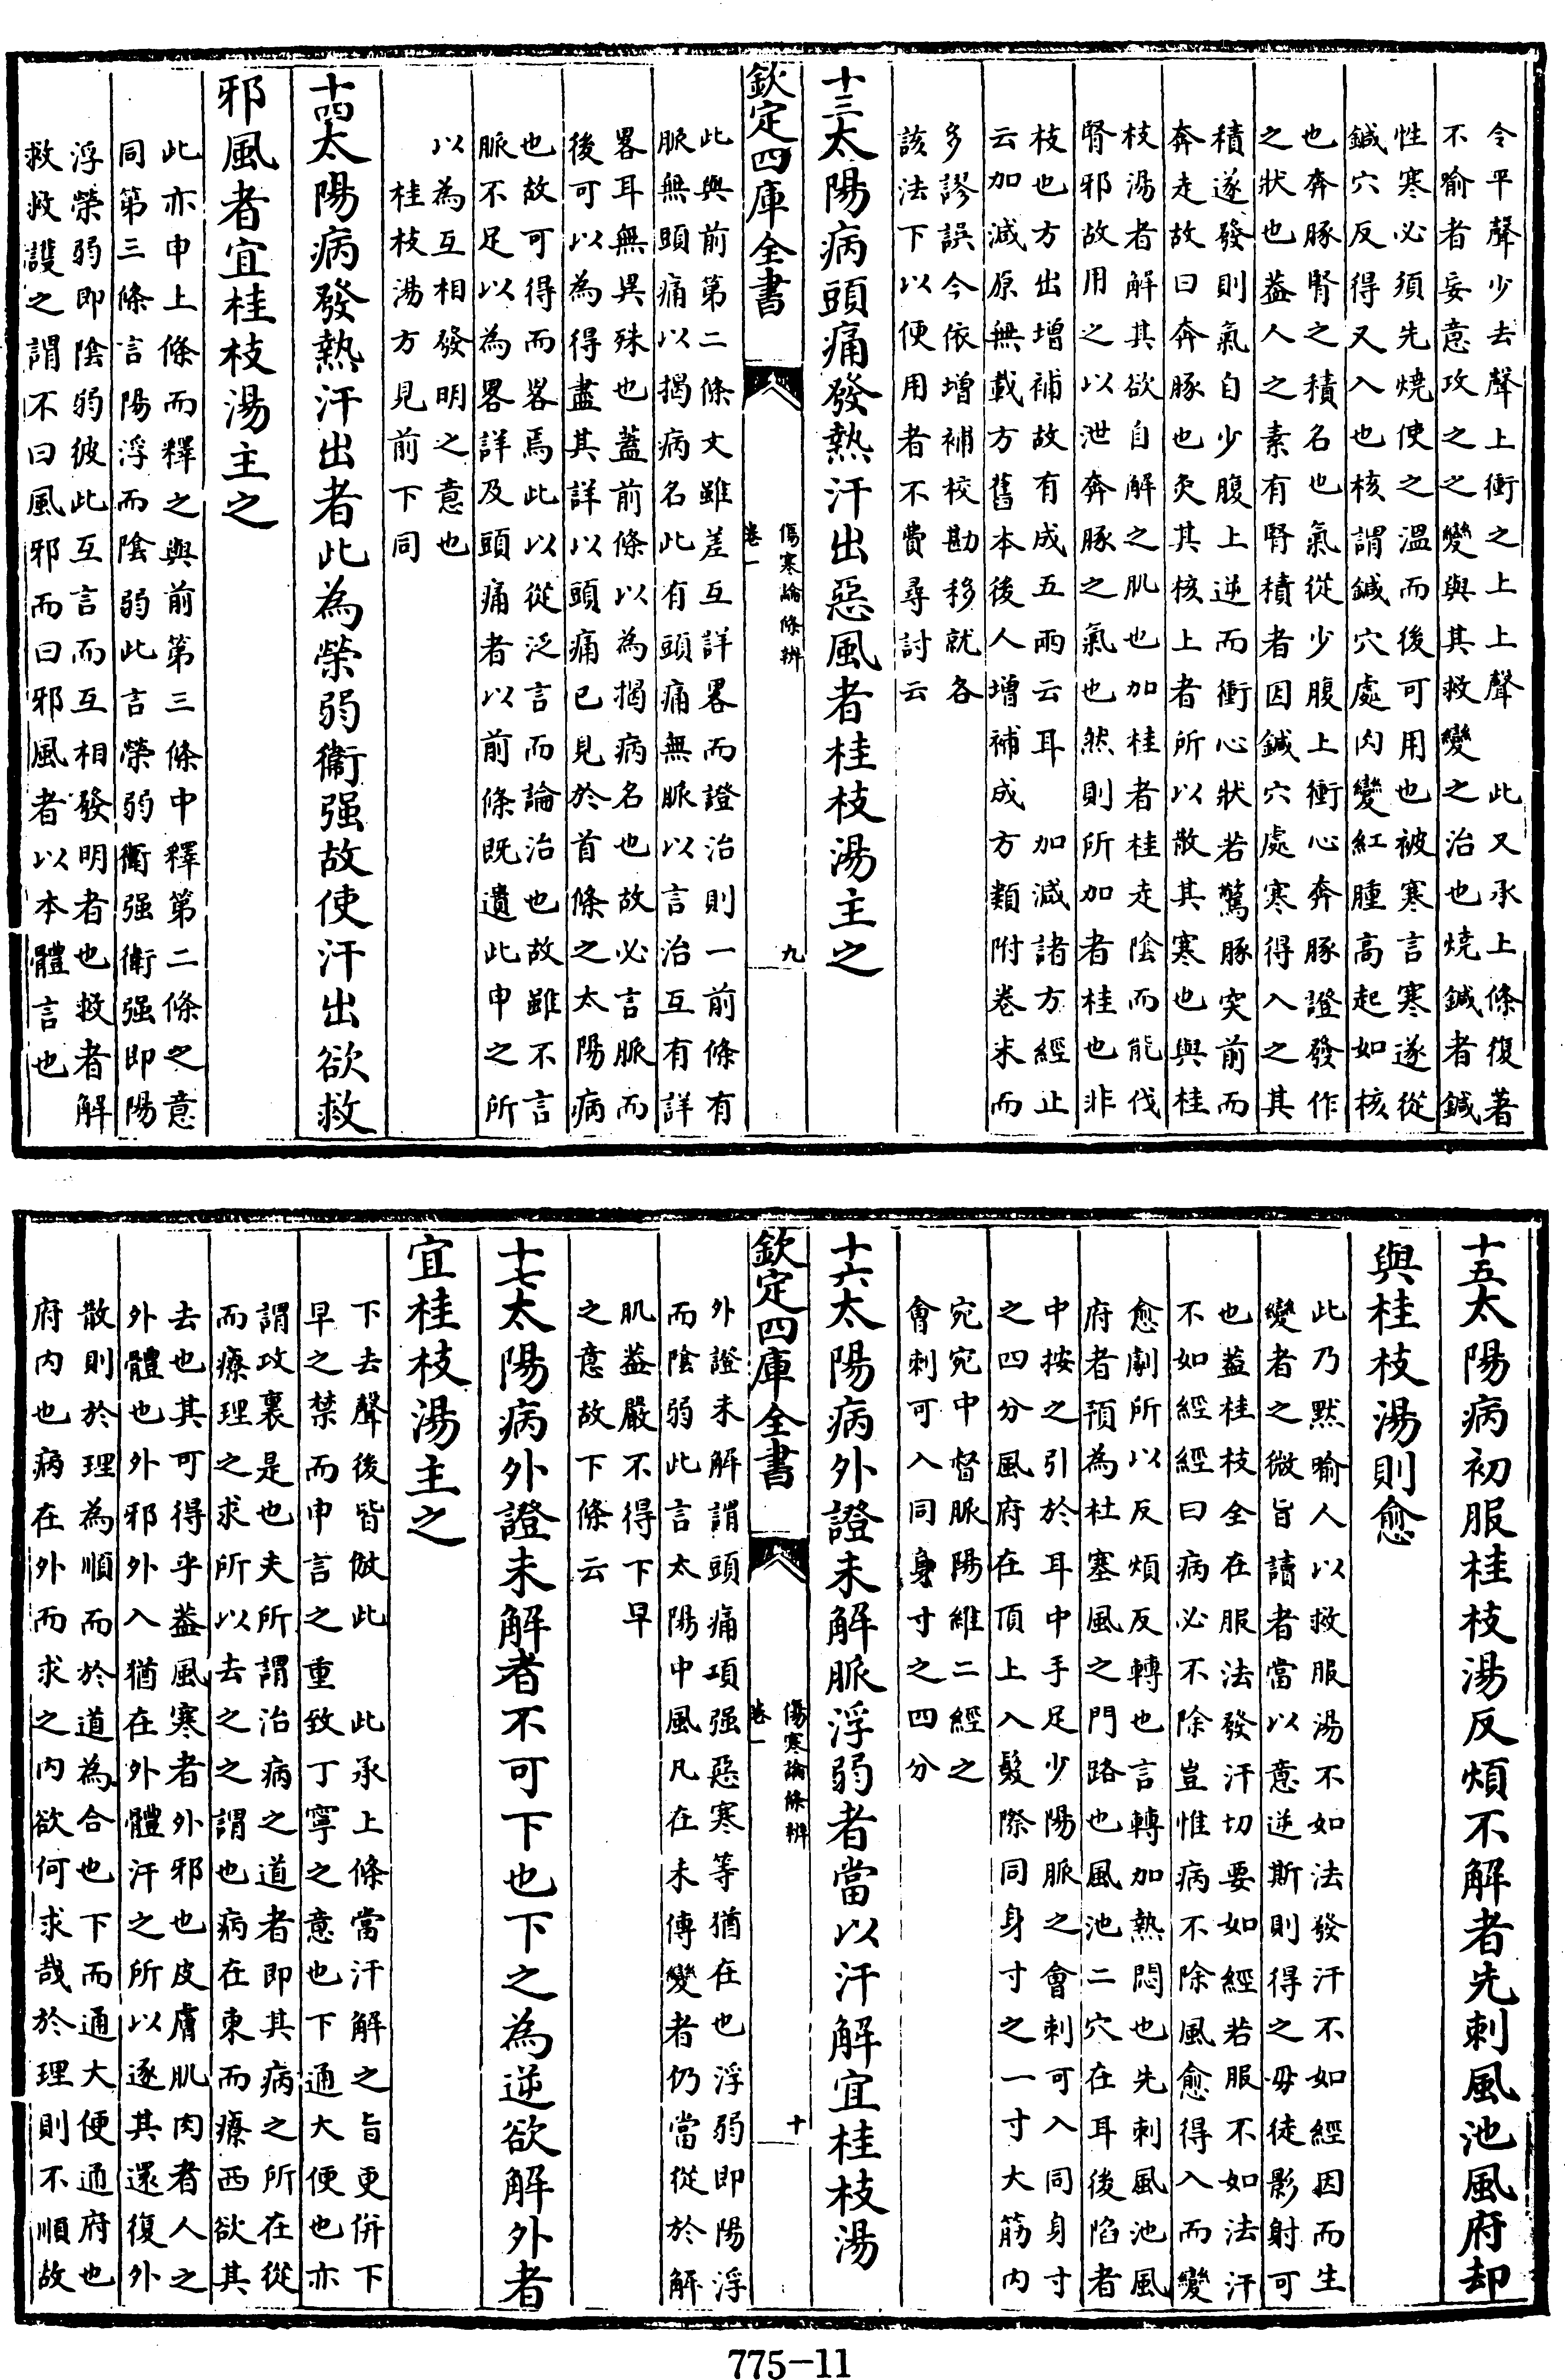 令平聲少去聲上衝之上上聲　此又承上條復著
不喻者妄意攻之之變與其救變之治也燒鍼者鍼
性寒必須先燒使之溫而後可用也被寒言寒遂從
鍼穴反得又入也核謂鍼穴處肉變紅腫高起如核
也奔豚腎之積名也氣從少腹上衝心奔豚證發作
之狀也葢人之素有腎積者因鍼穴處寒得入之其
積遂發則氣自少腹上逆而衝心狀若驚豚突前而
奔走故曰奔豚也灸其核上者所以散其寒也與桂
枝湯者解其欲自解之肌也加桂者桂走陰而能伐
腎邪故用之以泄奔豚之氣也然則所加者桂也非
枝也方出增補故有成五兩云耳　加減諸方經止
云加減原無載方舊本後人增補成方類附卷末而
多謬誤今依增補校勘移就各
該法下以便用者不費尋討云
十三太陽病頭痛發熱汗出惡風者桂枝湯主之
欽定四庫全書
傷寒論條辨
卷一
九
此與前第二條文雖差互詳畧而證治則一前條有
脈無頭痛以揭病名此有頭痛無脈以言治互有詳
畧耳無異殊也葢前條以為揭病名也故必言脈而
後可以為得盡其詳以頭痛已見於首條之太陽病
也故可得而畧焉此以從泛言而論治也故雖不言
脈不足以為畧詳及頭痛者以前條既遺此申之所
以為互相發明之意也
桂枝湯方見前下同
十四太陽病發熱汗出者此為榮弱衞强故使汗出欲救
邪風者宜桂枝湯主之
此亦申上條而釋之與前第三條中釋第二條之意
同第三條言陽浮而陰弱此言榮弱衞强衞强即陽
浮榮弱即陰弱彼此互言而互相發明者也救者解
救救護之謂不曰風邪而曰邪風者以本體言也
十五太陽病初服桂枝湯反煩不解者先刺風池風府却
與桂枝湯則愈
此乃黙喻人以救服湯不如法發汗不如經因而生
變者之微旨讀者當以意逆斯則得之毋徒影射可
也葢桂枝全在服法發汗切要如經若服不如法汗
不如經經曰病必不除豈惟病不除風愈得入而變
愈劇所以反煩反轉也言轉加熱悶也先刺風池風
府者預為杜塞風之門路也風池二穴在耳後陷者
中按之引於耳中手足少陽脈之會刺可入同身寸
之四分風府在頂上入髮際同身寸之一寸大筋內
宛宛中督脈陽維二經之
會刺可入同身寸之四分
十六太陽病外證未解脈浮弱者當以汗解宜桂枝湯
欽定四庫全書
傷寒論條辨
卷一
十
外證未解謂頭痛項强惡寒等猶在也浮弱即陽浮
而陰弱此言太陽中風凡在未傳變者仍當從於解
肌葢嚴不得下早
之意故下條云
十七太陽病外證未解者不可下也下之為逆欲解外者
宜桂枝湯主之
下去聲後皆倣此　此承上條當汗解之旨更併下
早之禁而申言之重致丁寧之意也下通大便也亦
謂攻裏是也夫所謂治病之道者即其病之所在從
而療理之求所以去之之謂也病在東而療西欲其
去也其可得乎葢風寒者外邪也皮膚肌肉者人之
外體也外邪外入猶在外體汗之所以逐其還復外
散則於理為順而於道為合也下而通大便通府也
府內也病在外而求之內欲何求哉於理則不順故
775-11